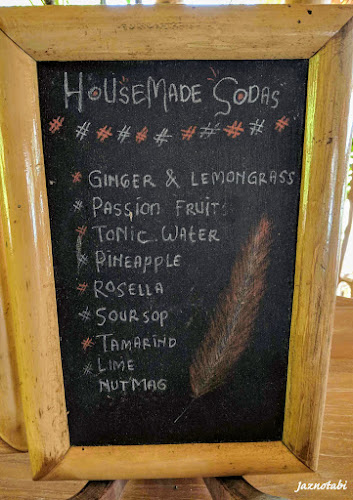 HOUSEMADE SODAS
# # # # # # # # # #
# GINGER & LEMONGRASS
# PASSION FRUITS
# TONIC WATER
# PINEAPPLE
# ROSELLA
# SOURSOP
# TAMARIND
# LIME
NUTMAG
Jaznotabi